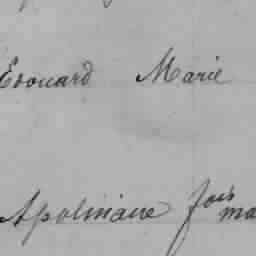 Edouard Marie
Apolinaire fois ma